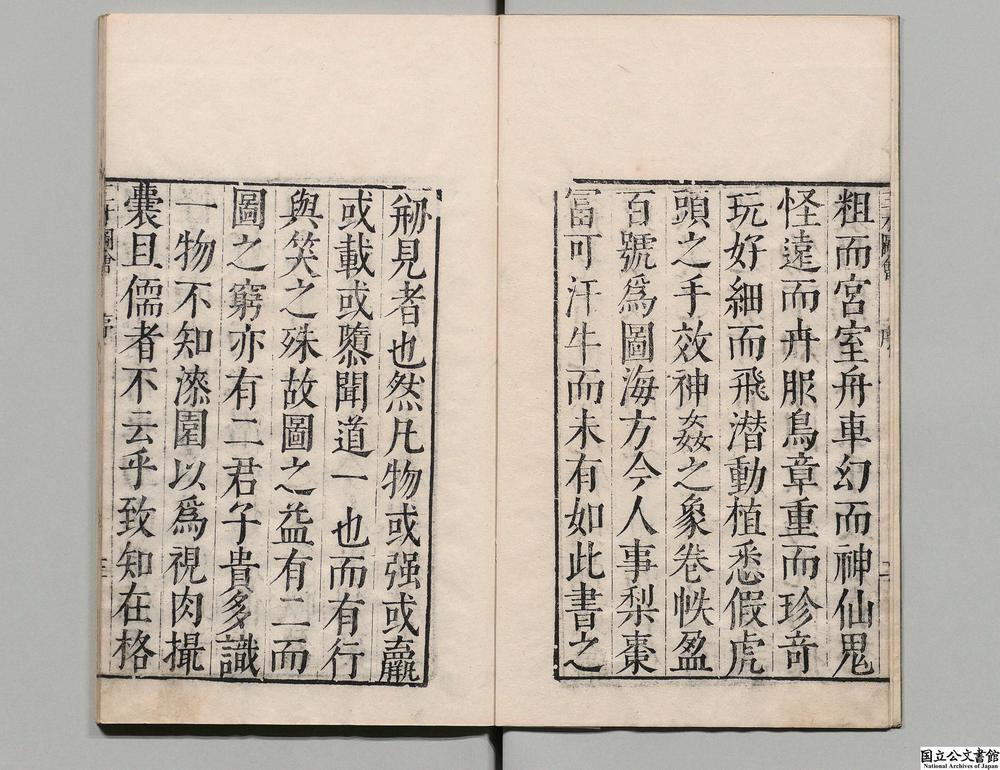 粗而宮室舟車幻而神仙鬼
怪遠而卉服鳥章重而珍竒
玩好細而飛潜動植悉假虎
頭之手效神姦之象卷帙盈
百號爲圖海方今人事梨棗
富可汗牛而未有如此書之
剏見者也然凡物或强或羸
或載或隳聞道一也而有行
與笑之殊故圖之益有二而
圖之窮亦有二君子貴多識
一物不知漆園以爲視肉撮
囊且儒者不云乎致知在格
三才圖會
序
二
三才圖會
序
三
国立公文書館
National Archives of Japan